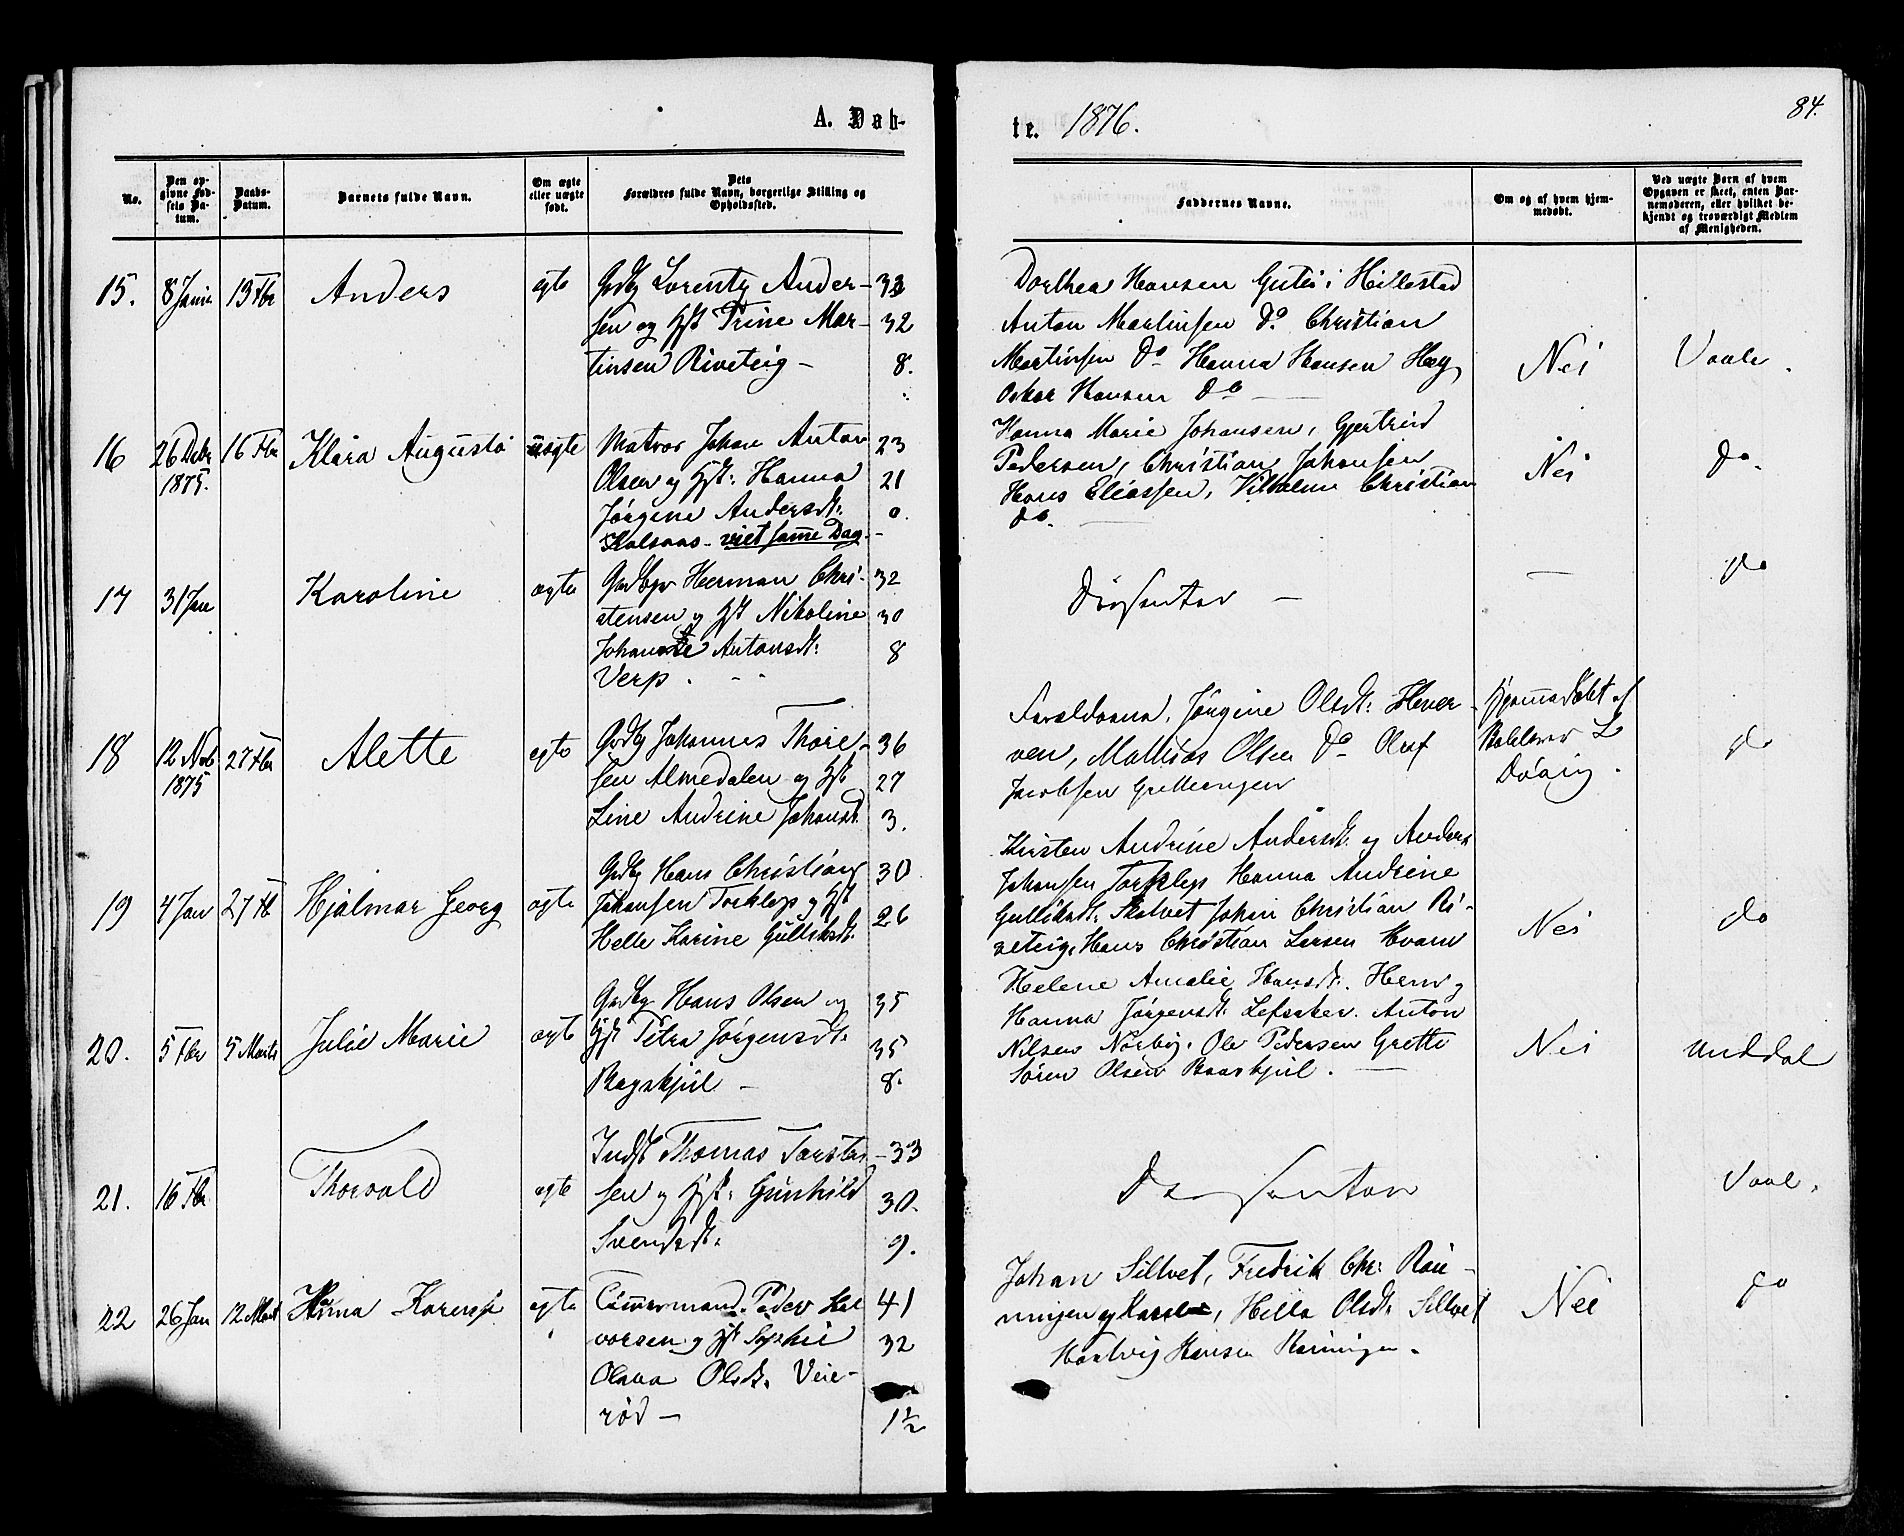 A. Døb-
te. 1876.
84.
No.
Den op-
givne Fød-
sels Da-
tum.
Daabs-
Datum.
Barnets fulde Navn.
Om ægte
eller uægte
født.
Dets
Forældres fulde Navn, borgerlige Stilling og
Opholdssted.
Faddernes Navne.
Om og af hvem hjem-
medøbt.
Ved uægte Børn af hvem
Opgaven er skeet, enten Bar-
nemoderen, eller hvilket be-
kjendt og troværdigt Medlem
af Menigheden.
15. 8 Janr 13 Fbr Anders egte
Gdbg Lorentz Ander- 33
sen og Hst Trine Mar- 32
tinsen Riveteig - 8.
Dorthea Hansen i Hillestad
Anton Martinsen Do Christian
Martinsen Do Hanna Hansen
Oskar Hansen Do
Nei Vaale.
16 26 Debr 1875. 16 Fbr Klara Augusta uægte
Matros Johan Anton 23
Olsen og Hst: Hanna 21
Jørgine Andersdt: 0.
viet samme Dag -
Hanna Marie Johansen, Gjertrud
Pedersen, Christian Johansen
Hans Eliassen, Vilhelm Christian
do.
Nei do.
17 31 Jan Karoline ægte
Gdbgr Herman Chri- 32
stensen og Hst Nikoline 30
Antonsdt: 8
Verp.
— do
18 12 Nob 1875 27 Fbr Alette egte
Gdbg Johannes Thore- 36
sen Almedalen og Hst 27
Line Andrine Johansdt 3.
Forældrene, Jørgine Olsdt: Hever-
ven, Mathias Olsen Do Olaf
Jacobsen
Hjemmedøbt af
do
19 4 Jan 27 Fb Hjalmar Georg ægte
Gdbg Hans Christian 30
Johansen Torklep og Hst
Helle Karine Gulliksdt. 26
Kirsten Andrine Andersdt. og Anders
Johansen Torklep Hanna Andrine
Gulliksdt: Skalvet Johan Christian Ri-
veteig, Hans Christian Larsen Hvam
Nei do
20. 5 Fbr 5 Marts Julie Marie ægte
Gdbg Hans Olsen og 35
Hst Petra Jørgensdt. 35
8.
Helene Amalie Hansdt. og
Hanna Jørgensdt. Lefsaker. Anton
Nilsen Nørby. Ole Pedersen Grette
Søren Olsen
Nei Unddal
21. 16 Fbr Thorvald egte
Indst Thomas Torsten- 33
sen og Hst: Gunhild 30.
Svendsdt. 9.
Vaal.
22 26 Jan 12 Mart egte
Tømmermand Peder Hal 41
vorsen og Hst Sophie 32
Olava Olsdt. Veie-
rød — 1½
Johan Sillvet, Fredrik Chr: Røn-
ningen, Hella Olsdt. Sillvet
Hartvig Hansen Rønningen.
Nei do